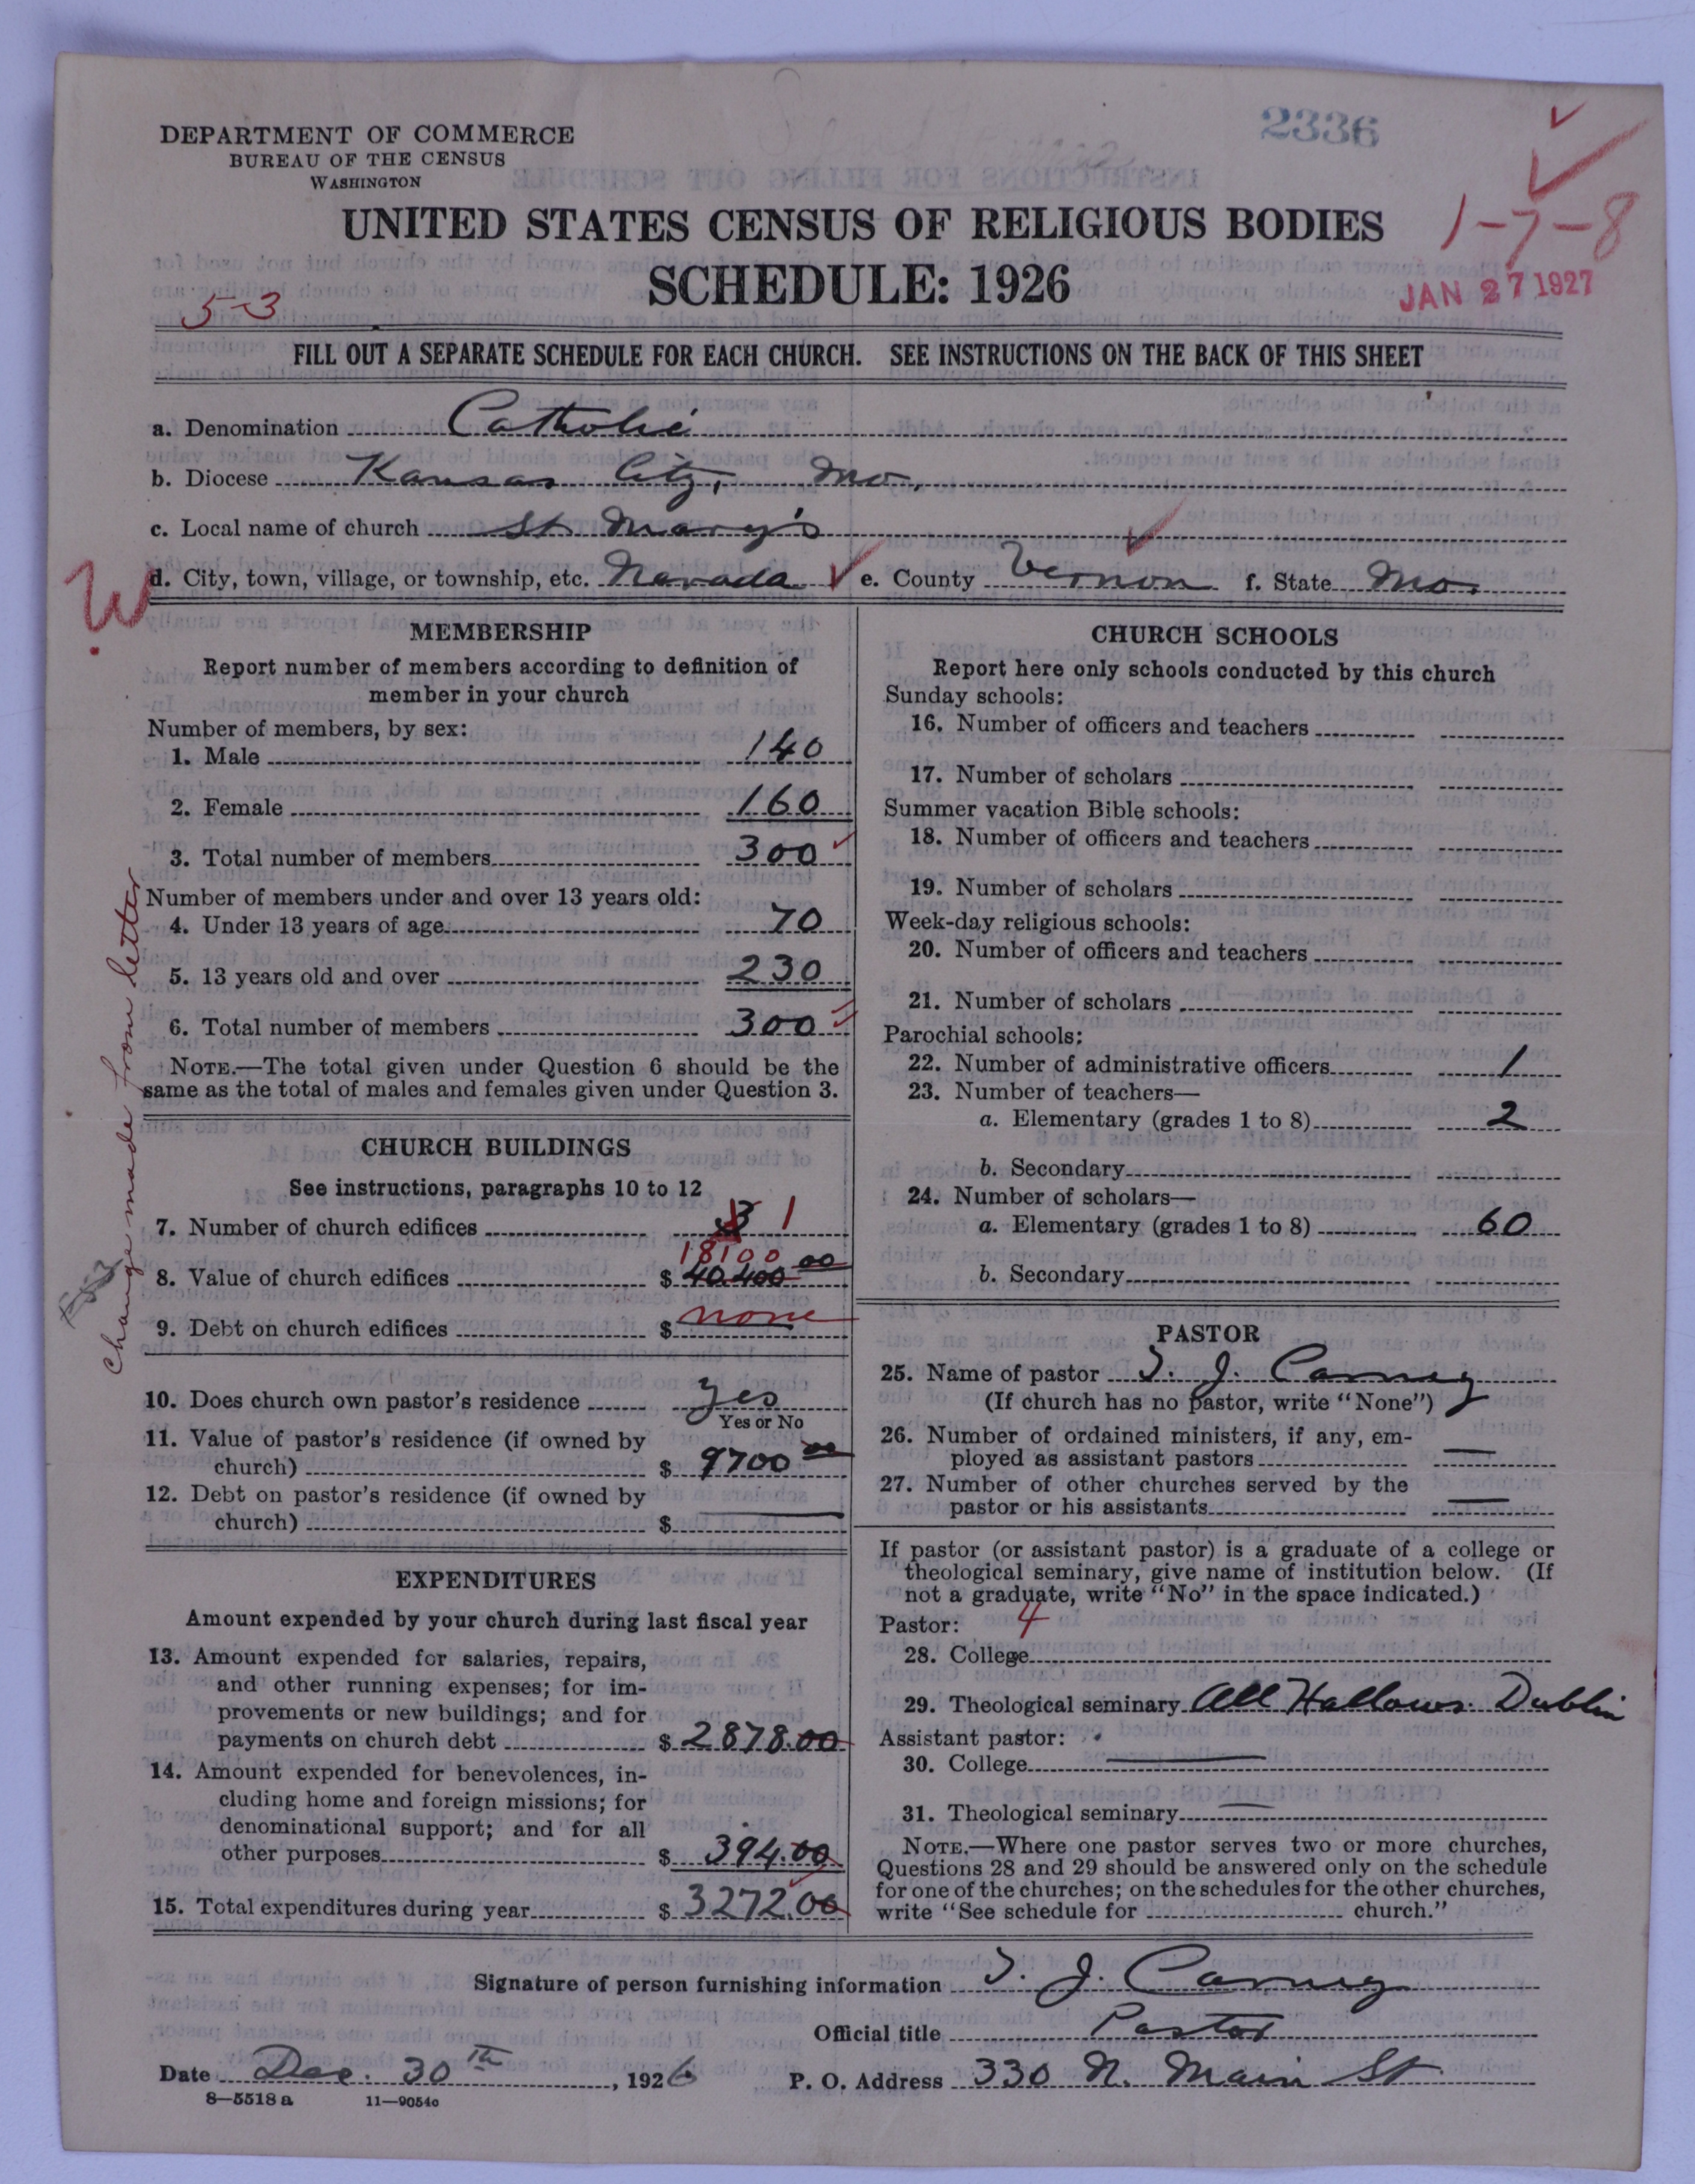 2336
DEPARTMENT OF COMMERCE
BUREAU OF THE CENSUS
WASHINGTON
UNITED STATES CENSUS OF RELIGIOUS BODIES
SCHEDULE: 1926
1-7-8
JAN 27 1927
5-3
FILL OUT A SEPARATE SCHEDULE FOR EACH CHURCH. SEE INSTRUCTIONS ON THE BACK OF THIS SHEET
a. Denomination Catholic
b. Diocese Kansas City, Mo.
c. Local name of church St Mary's
d. City, town, village, or township, etc. Nevada e. County Vernon f. State Mo.
W.
MEMBERSHIP
Report number of members according to definition of
member in your church
Number of members, by sex:
1. Male 140
2. Female 160
3. Total number of members 300
Number of members under and over 13 years old:
4. Under 13 years of age 70
5. 13 years old and over 230
6. Total number of members 300
NOTE.—The total given under Question 6 should be the
same as the total of males and females given under Question 3.
Change made from letter
CHURCH BUILDINGS
See instructions, paragraphs 10 to 12
7. Number of church edifices 3 1
18100
8. Value of church edifices $ 40400 00
9. Debt on church edifices $ none
10. Does church own pastor's residence yes
Yes or No
11. Value of pastor's residence (if owned by
church) $ 9700 00
12. Debt on pastor's residence (if owned by
church) $
EXPENDITURES
Amount expended by your church during last fiscal year
13. Amount expended for salaries, repairs,
and other running expenses; for im-
provements or new buildings; and for
payments on church debt $ 2878.00
14. Amount expended for benevolences, in-
cluding home and foreign missions; for
denominational support; and for all
other purposes $ 394.00
15. Total expenditures during year $ 3272.00
CHURCH SCHOOLS
Report here only schools conducted by this church
Sunday schools:
16. Number of officers and teachers
17. Number of scholars
Summer vacation Bible schools:
18. Number of officers and teachers
19. Number of scholars
Week-day religious schools:
20. Number of officers and teachers
21. Number of scholars
Parochial schools:
22. Number of administrative officers 1
23. Number of teachers—
a. Elementary (grades 1 to 8) 2
b. Secondary
24. Number of scholars—
a. Elementary (grades 1 to 8) 60
b. Secondary
PASTOR
25. Name of pastor T. J. Carney
(If church has no pastor, write "None")
26. Number of ordained ministers, if any, em-
ployed as assistant pastors
27. Number of other churches served by the
pastor or his assistants
If pastor (or assistant pastor) is a graduate of a college or
theological seminary, give name of institution below. (If
not a graduate, write "No" in the space indicated.)
Pastor: 4
28. College
29. Theological seminary All Hallows. Dublin
Assistant pastor:
30. College
31. Theological seminary
NOTE.—Where one pastor serves two or more churches,
Questions 28 and 29 should be answered only on the schedule
for one of the churches; on the schedules for the other churches,
write "See schedule for church."
Signature of person furnishing information T. J. Carney
Official title Pastor
Date Dec. 30th, 1926 P. O. Address 330 N. Main St
8—5518a 11—9054c